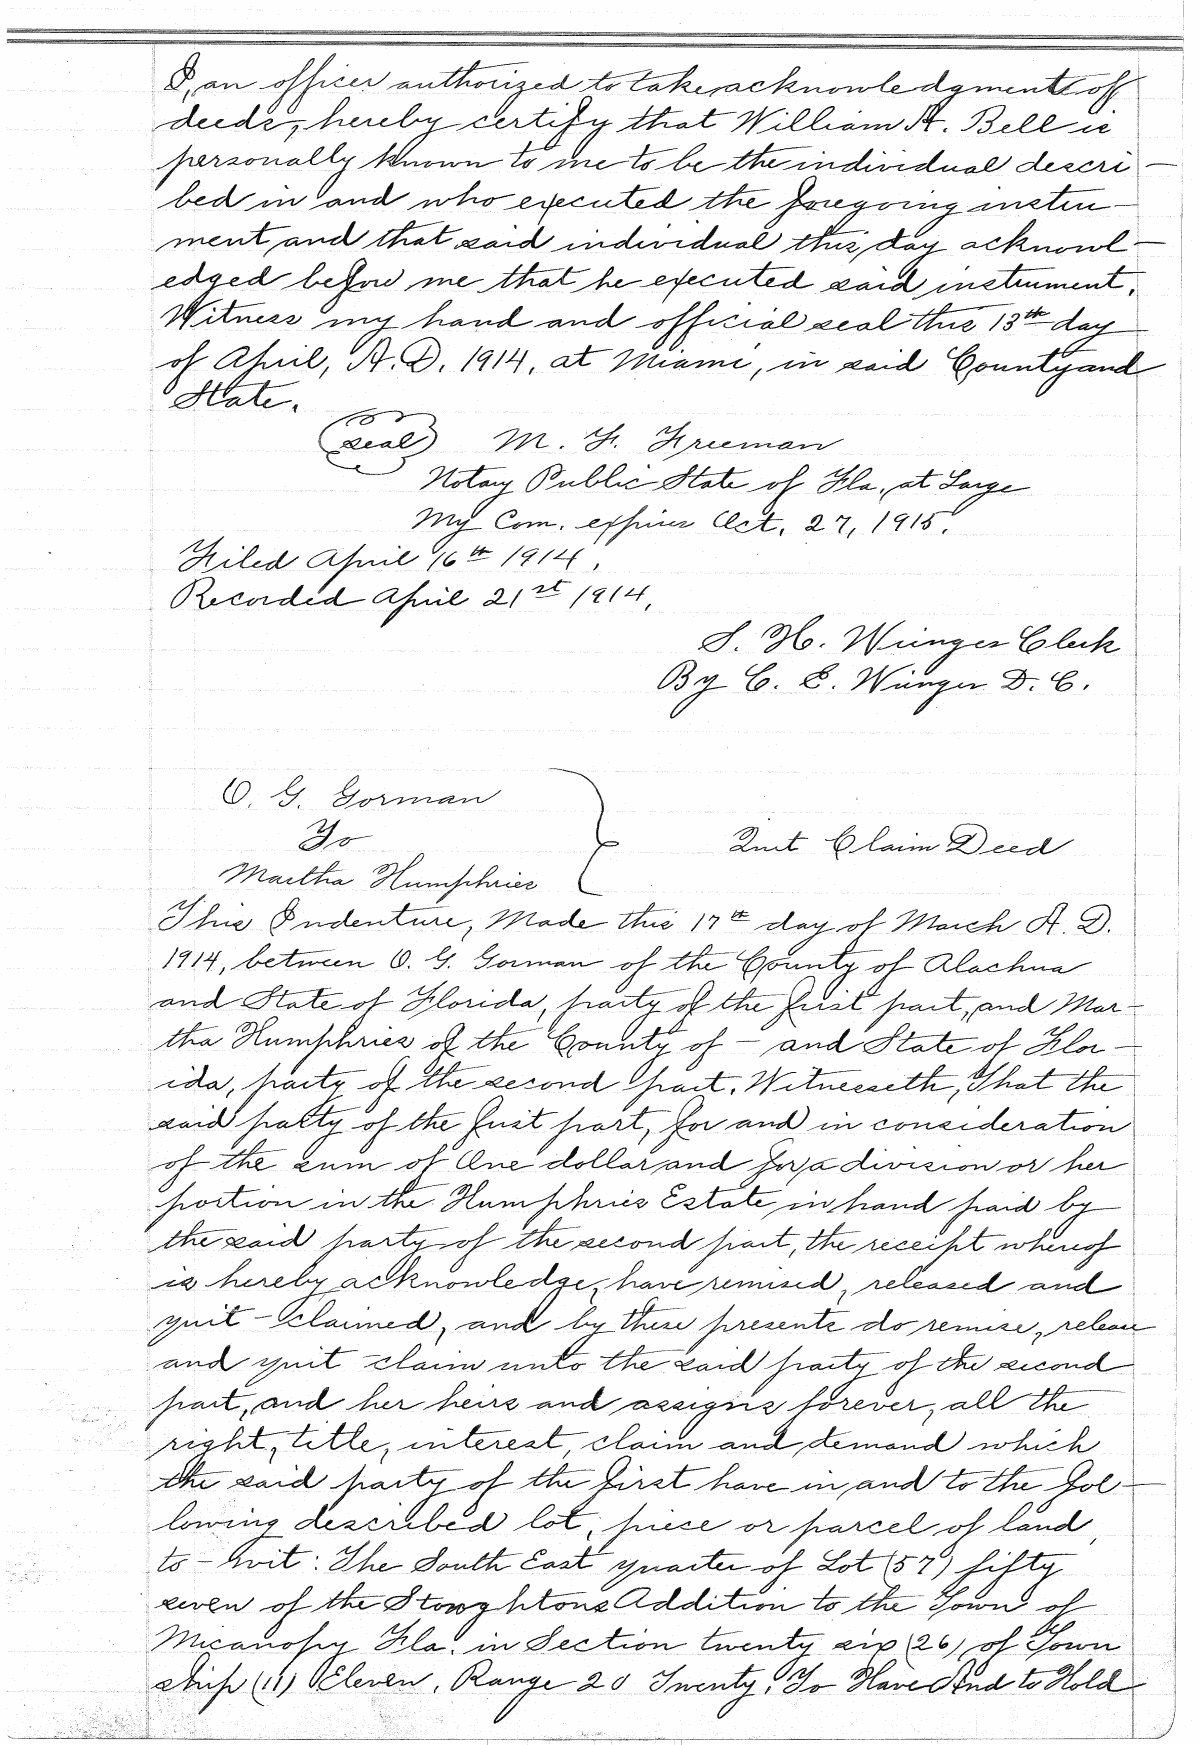 I, an officer authorized to take acknowledgments of
deeds, hereby certify that William H. Bell is
personally known to me to be the individual descri-
bed in and who executed the foregoing instru-
ment, and that said individual this day acknowl-
edged before me that he executed said instrument.
Witness my hand and official seal this 13th day
of April, A.D. 1914, at Miami, in said County and
State.
(seal) M. F. Freeman
Notary Public State of Fla. at Large
My Com. expires Oct. 27, 1915.
Filed April 16th 1914.
Recorded April 21st 1914.
S. H. Wienges Clerk
By C. E. Wienges D. C.
O. G. Gorman
To
Martha Humphries
Quit Claim Deed
This Indenture, Made this 17th day of March A. D.
1914, between O. G. Gorman of the County of Alachua
and State of Florida, party of the first part, and Mar-
tha Humphries of the County of - and State of Flor-
ida, party of the second part. Witnesseth, That the
said party of the first part, for and in consideration
of the sum of One dollar and for a division or her
portion in the Humphries Estate in hand paid by
the said party of the second part, the receipt whereof
is hereby acknowledge, have remised, released and
quit-claimed, and by these presents do remise, release
and quit claim unto the said party of the second
part, and her heirs and assigns forever, all the
right, title, interest, claim and demand which
the said party of the first have in and to the fol-
lowing described lot, piece or parcel of land,
to-wit: The South East quarter of Lot (57) fifty
seven of the Stoughtons Addition to the Town of
Micanopy Fla. in Section twenty six (26) of Town
ship (11) Eleven, Range 20 Twenty. To Have And to Hold